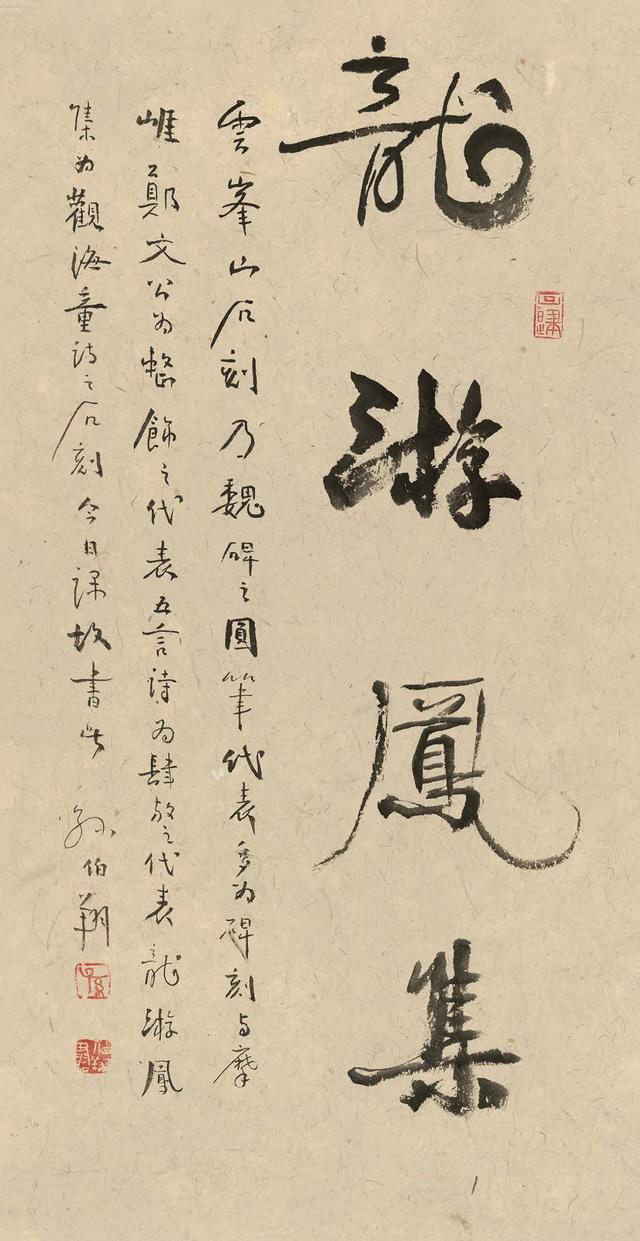 龍游鳳集
雲峯山石刻乃魏碑之圓筆代表多为碑刻与摩
崖鄭文公为整飾之代表五言詩为肆放之代表龍游鳳
集为觀海童詩之石刻今日課故書此
孫伯翔